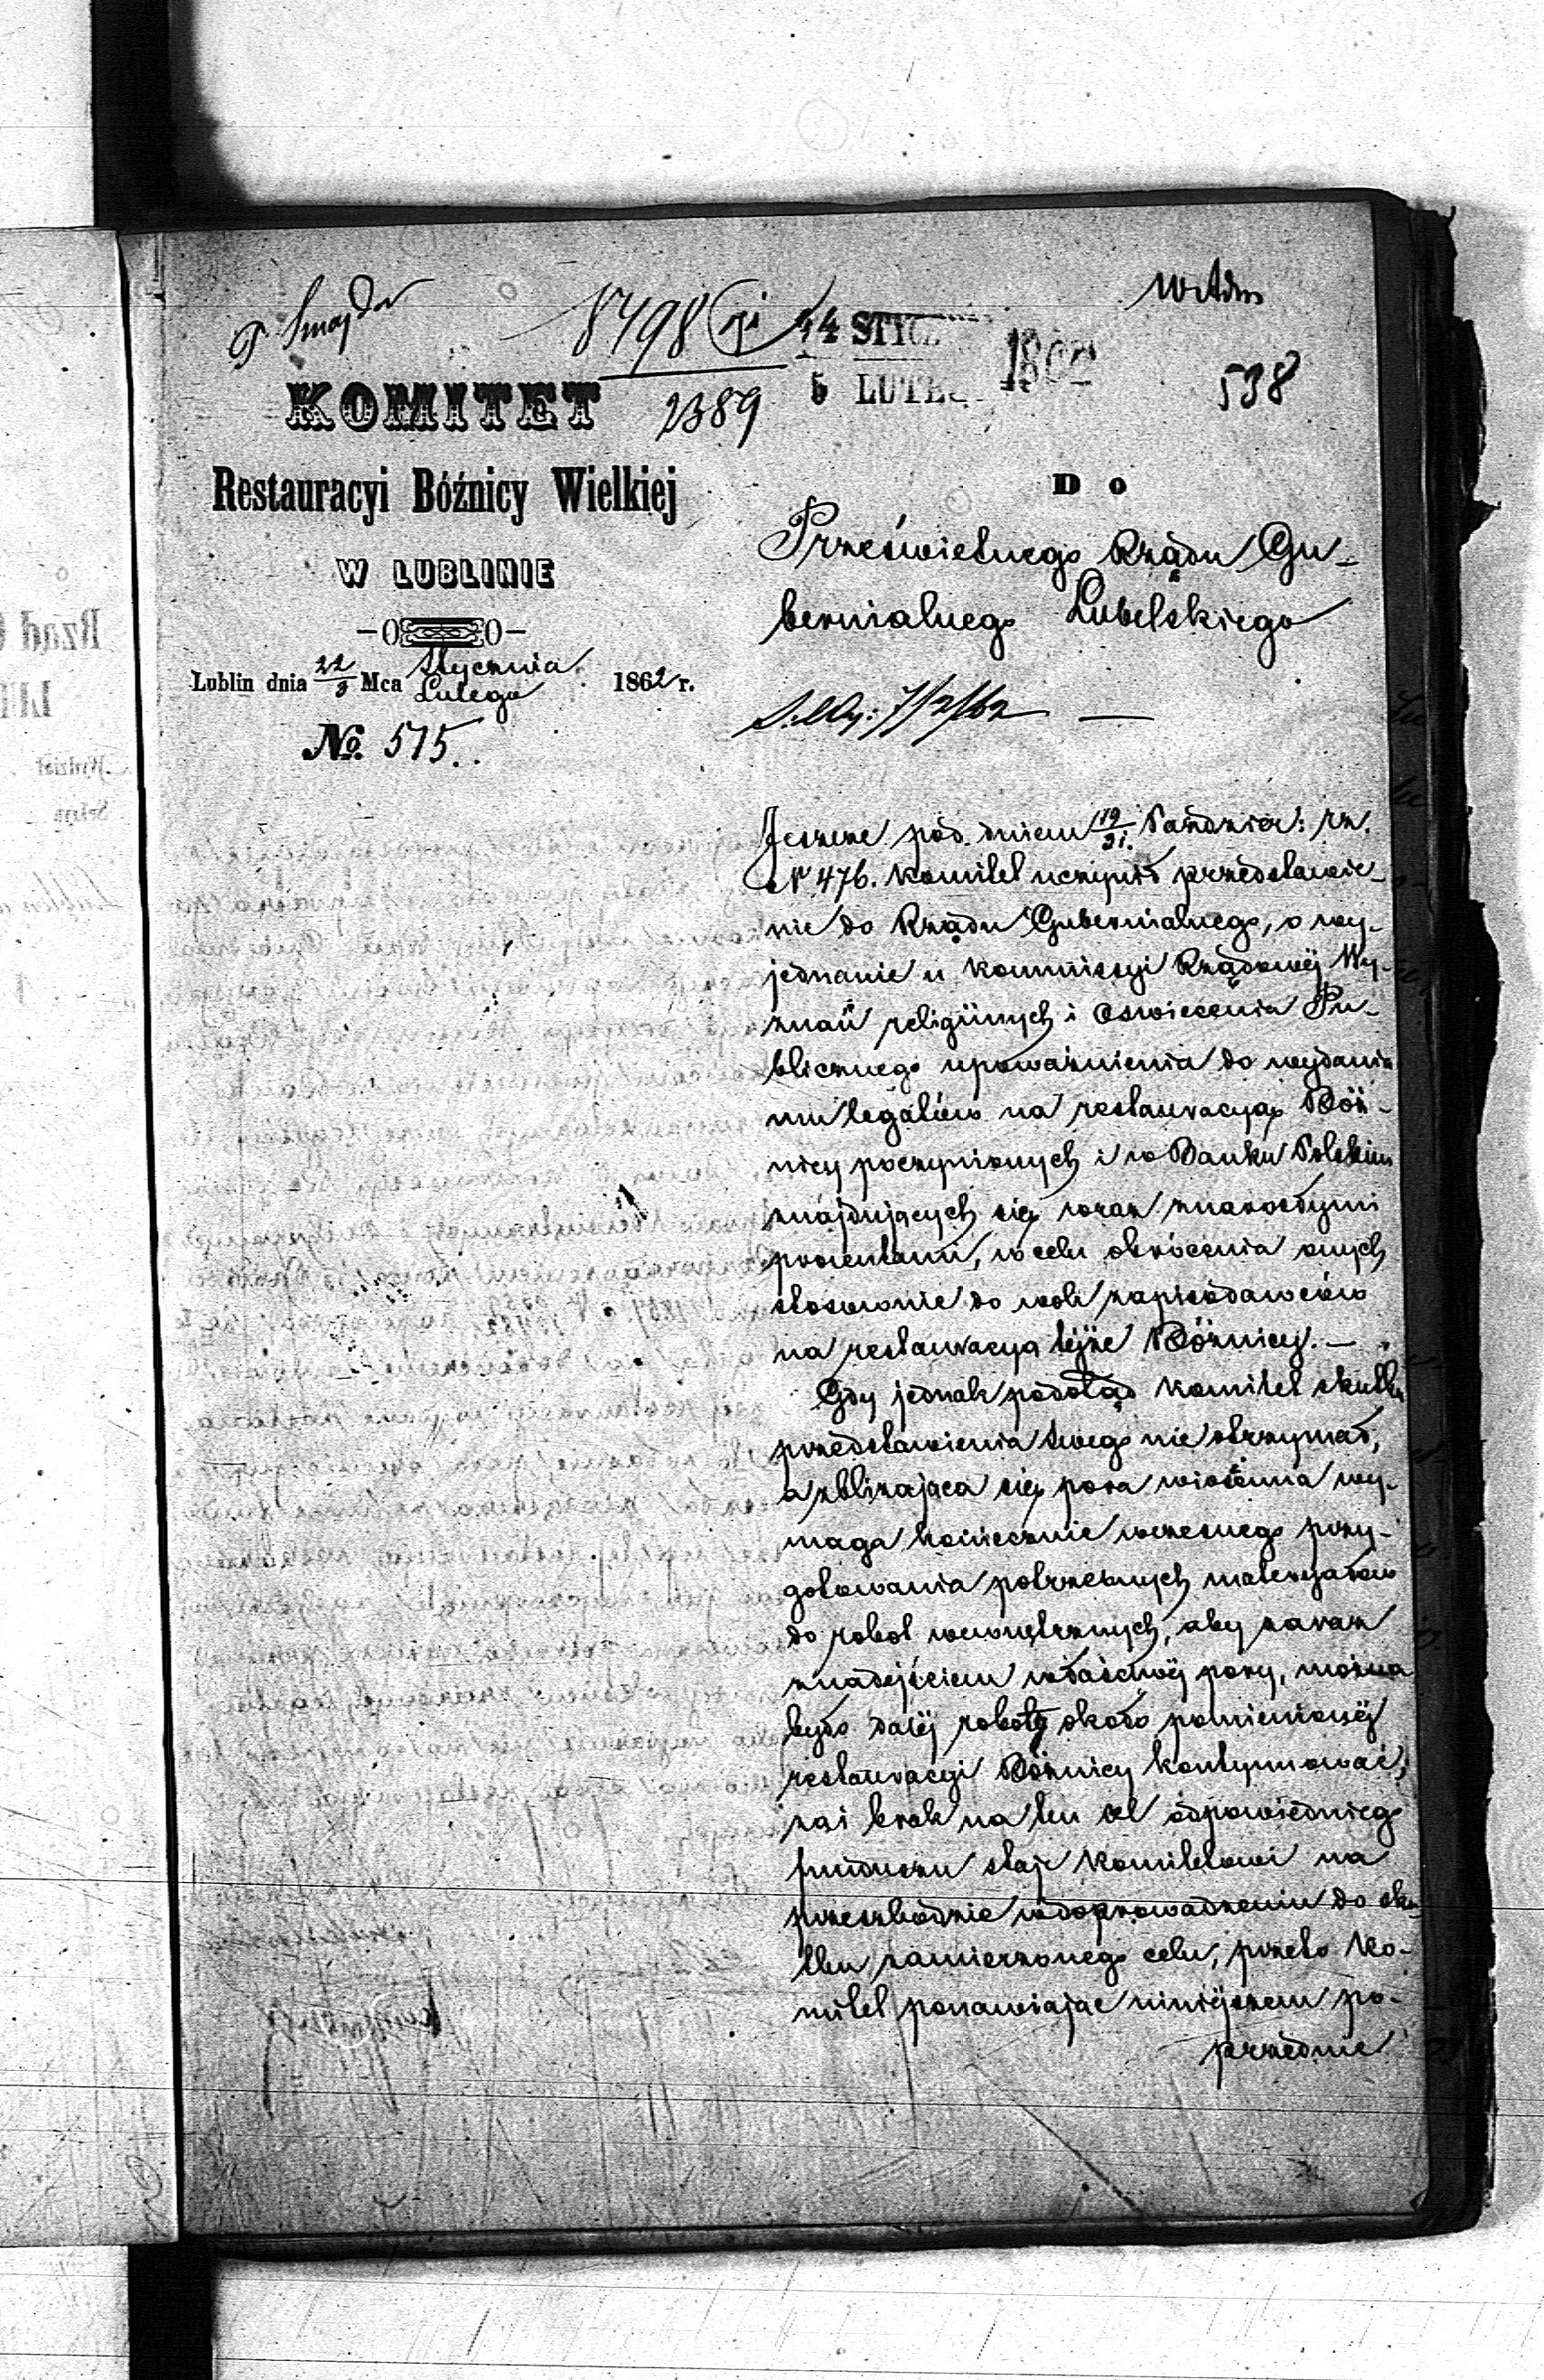 P. Smajdor
8498
2389
24 STYCZ
5 LUTE
1862
538
KOMITET
Restauracyi Bóżnicy Wielkiej
W LUBLINIE
Lublin dnia 22/3 Mca Stycznia/Lutego 1862 r.
№ 515.
Do
Prześwietnego Rządu Gu-
bernialnego Lubelskiego
7/2/62
Jeszcze pod dniem 19/31. Paździer: rz.
N 476. Komitet uczynił przedstawie-
nie do Rządu Gubernialnego, o wy-
jednanie u Kommissyi Rządowéj Wy-
znań religijnych i Oswiecenia Pu-
blicznego upoważnienia do wydania
mu legatów na restauracyą Bóż-
nicy poczynionych i w Banku Polskim
znajdujących się wraz z narosłymi
procentami, w celu obrócenia onych
stosownie do woli zapisodawców
na restauracyą téjże Bóżnicy. —
Gdy jednak podotąd Komitet skutku
przedstawienia swego nie otrzymał,
a zbliżająca się pora wiosenna wy-
maga koniecznie wczesnego przy-
gotowania potrzebnych materyałów
do robot wewnętrznych, aby zaraz
z nadejściem właściwéj pory, można
było daléj robotę około pomienionéj
restauracyi Bóżnicy kontynuować,
zaś brak na ten cel odpowiedniego
funduszu staje Komitetowi na
przeszkodzie w doprowadzeniu do sku-
tku zamierzonego celu, przeto Ko-
mitet ponawiając niniéjszem po-
przednie